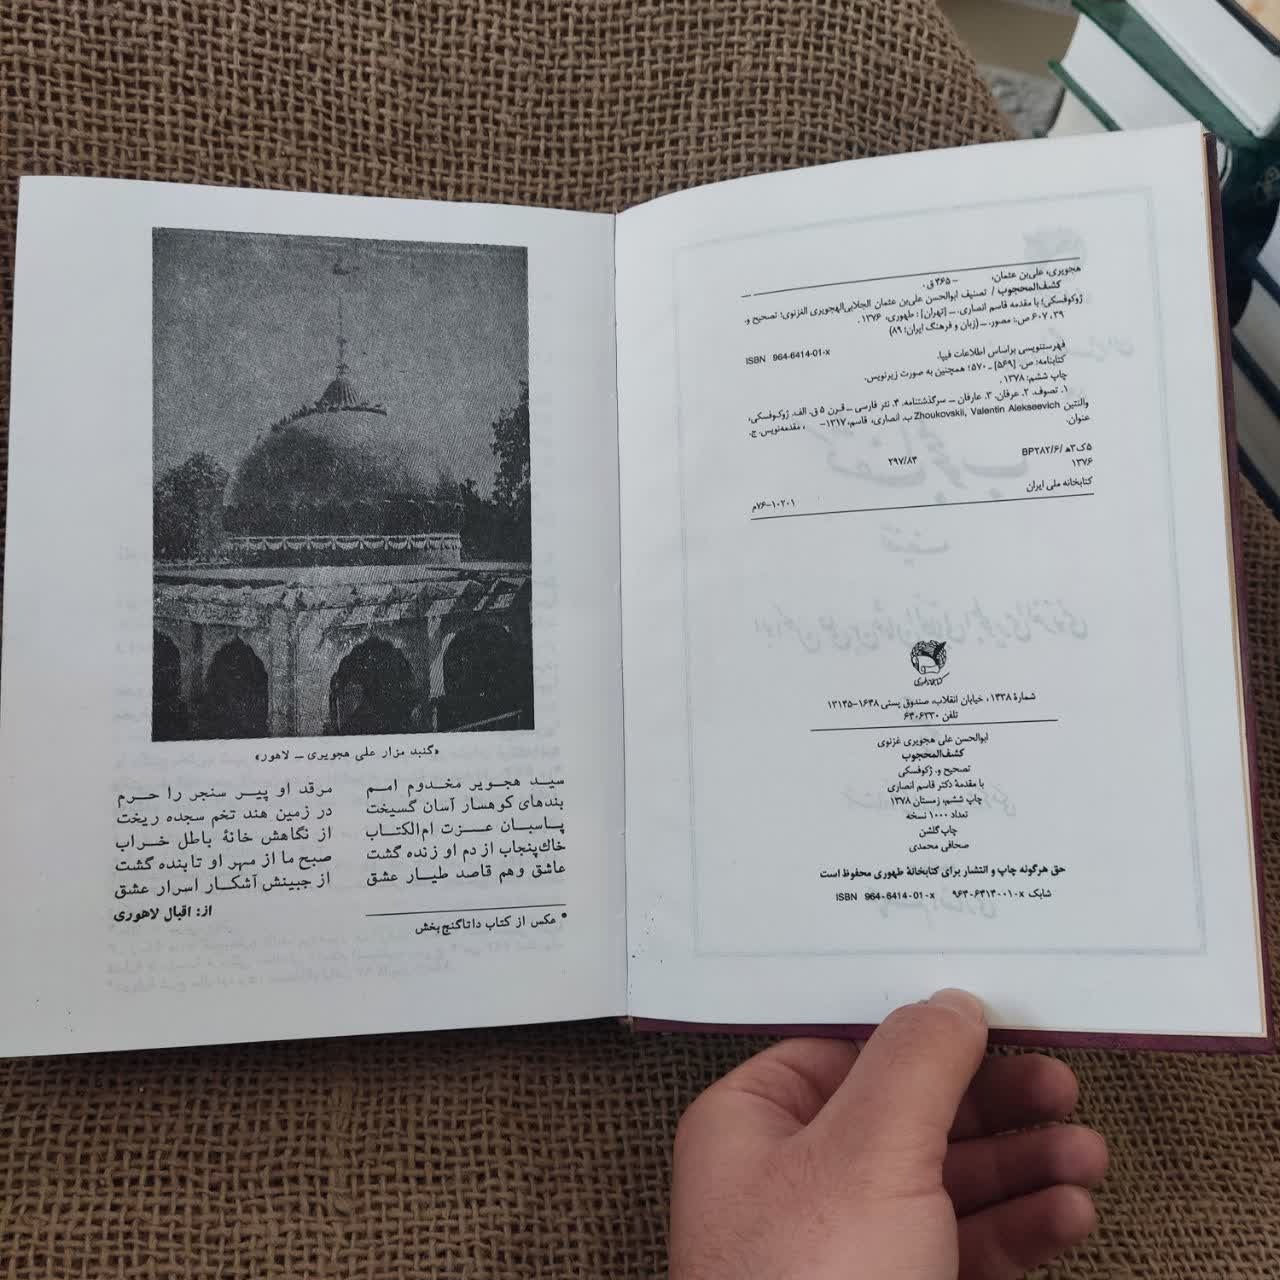 هجویری، علی‌بن عثمان، – ۴۶۵ ق.
کشف‌المحجوب / تصنیف ابوالحسن علی‌بن عثمان الجلابی‌الهجویری الغزنوی؛ تصحیح و.
ژوکوفسکی؛ با مقدمه قاسم انصاری. ــ [تهران]: طهوری، ۱۳۷۶.
۳۹، ۶۰۷ ص.: مصور. ــ (زبان و فرهنگ ایران؛ ۸۹)
ISBN 964-6414-01-x
فهرستنویسی براساس اطلاعات فیپا.
کتابنامه: ص. [۵۶۹] ـ ۵۷۰؛ همچنین به صورت زیرنویس.
چاپ ششم: ۱۳۷۸.
۱. تصوف. ۲. عرفان. ۳. عارفان ــ سرگذشتنامه. ۴. نثر فارسی ــ قرن ۵ ق. الف. ژوکوفسکی،
والنتین Zhoukovskii, Valentin Alekseevich ب. انصاری، قاسم، ۱۳۱۷– ، مقدمه‌نویس. ج.
عنوان.
۵ک۳ه‍ /BP۲۸۲/۶ ۲۹۷/۸۳
۱۳۷۶
کتابخانه ملی ایران ۱۰۲۰۱–۷۶م
کتابخانه طهوری
شمارهٔ ۱۳۳۸، خیابان انقلاب، صندوق پستی ۱۶۴۸–۱۳۱۴۵
تلفن ۶۴۰۶۳۳۰
ابوالحسن علی هجویری غزنوی
کشف‌المحجوب
تصحیح و. ژکوفسکی
با مقدمهٔ دکتر قاسم انصاری
چاپ ششم، زمستان ۱۳۷۸
تعداد ۱۰۰۰ نسخه
چاپ گلشن
صحافی محمدی
حق هرگونه چاپ و انتشار برای کتابخانهٔ طهوری محفوظ است
شابک ۹۶۴-۶۴۱۴-۰۱-x ISBN 964-6414-01-x
«گنبد مزار علی هجویری ــ لاهور»
سید هجویر مخدوم امم مرقد او پیر سنجر را حرم
بندهای کوهسار آسان گسیخت در زمین هند تخم سجده ریخت
پاسبان عزت ام‌الکتاب از نگاهش خانهٔ باطل خراب
خاک‌پنجاب از دم او زنده گشت صبح ما از مهر او تابنده گشت
عاشق وهم قاصد طیار عشق از جبینش آشکار اسرار عشق
از: اقبال لاهوری
• عکس از کتاب داتاگنج‌بخش